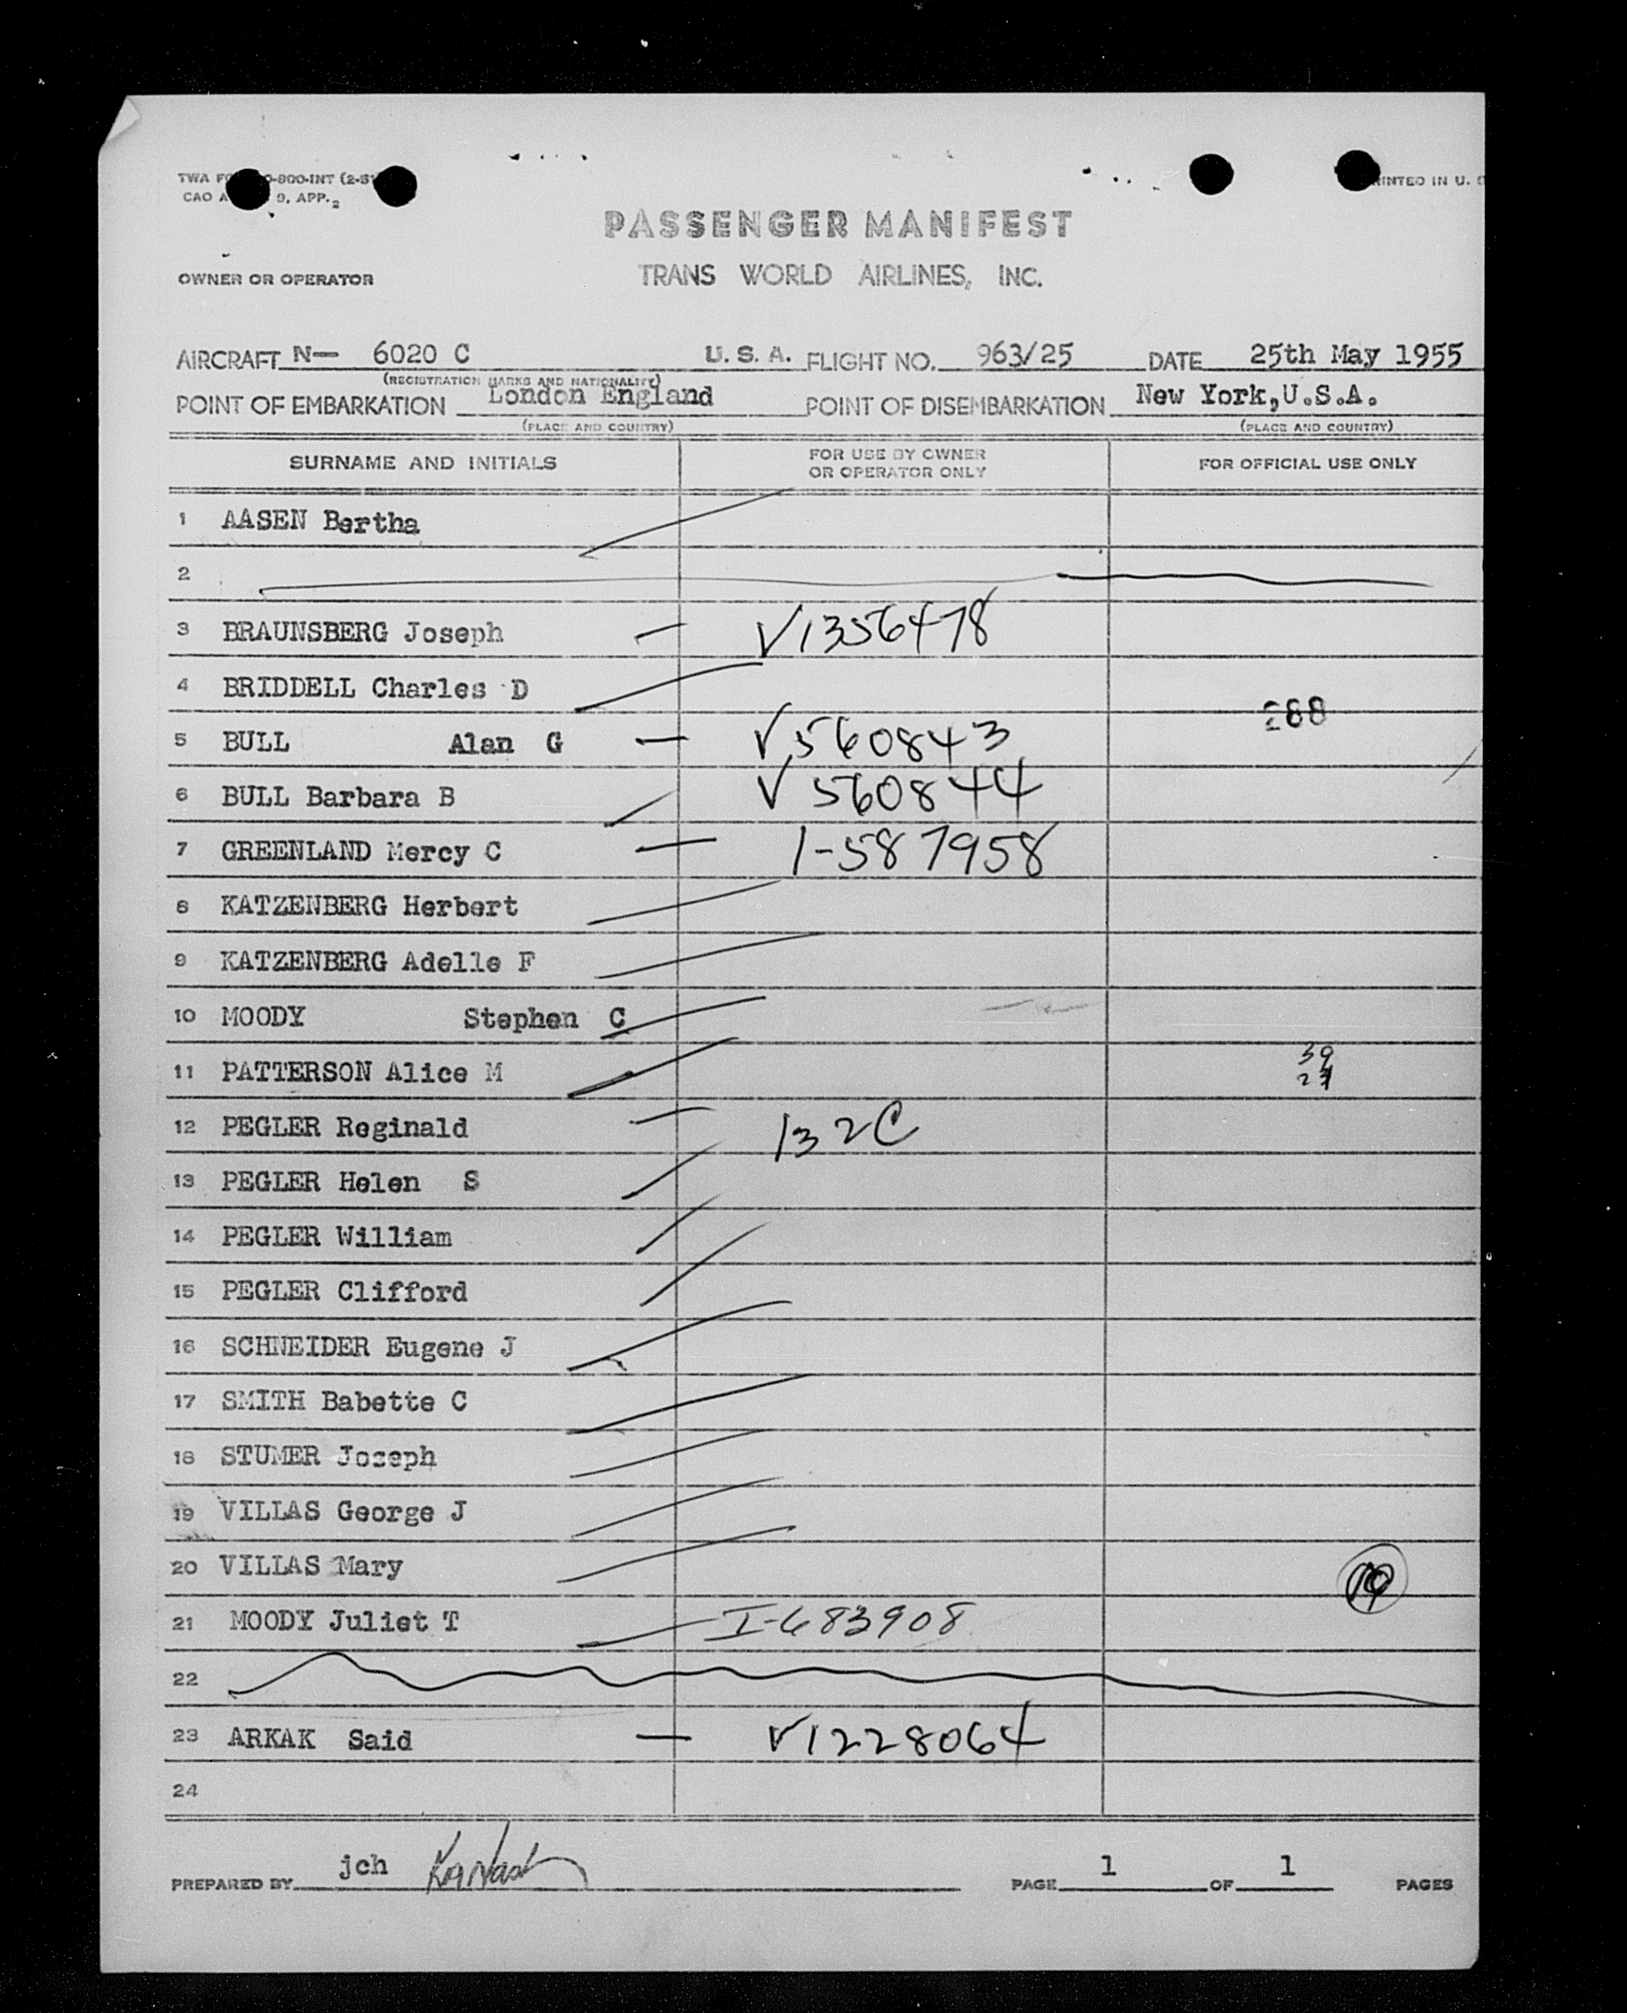 TWA FO 0-800-INT (2-51
CAO A 9, APP. 2
PRINTED IN U. S
PASSENGER MANIFEST
OWNER OR OPERATOR TRANS WORLD AIRLINES, INC.
AIRCRAFT N— 6020 C U. S. A. FLIGHT NO. 963/25 DATE 25th May 1955
(REGISTRATION MARKS AND NATIONALITY)
POINT OF EMBARKATION London England POINT OF DISEMBARKATION New York,U.S.A.
(PLACE AND COUNTRY) (PLACE AND COUNTRY)
SURNAME AND INITIALS FOR USE BY OWNER OR OPERATOR ONLY FOR OFFICIAL USE ONLY
1 AASEN Bertha
2
3 BRAUNSBERG Joseph — V1356478
4 BRIDDELL Charles D
288
5 BULL Alan G — V560843
6 BULL Barbara B V 560844
7 GREENLAND Mercy C — 1-587958
8 KATZENBERG Herbert
9 KATZENBERG Adelle F
10 MOODY Stephen C
11 PATTERSON Alice M 39
27
12 PEGLER Reginald — 132C
13 PEGLER Helen S
14 PEGLER William
15 PEGLER Clifford
16 SCHNEIDER Eugene J
17 SMITH Babette C
18 STUMER Joseph
19 VILLAS George J
20 VILLAS Mary 19
21 MOODY Juliet T I-683908
22
23 ARKAK Said — V1228064
24
PREPARED BY jch PAGE 1 OF 1 PAGES